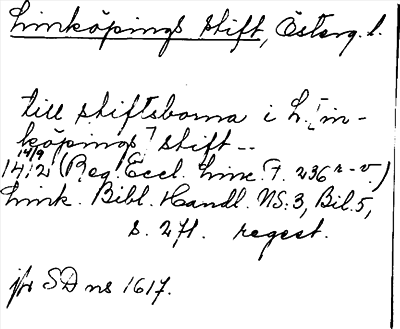 Linköpings stift, Österg. l.
till stiftsborna i L. [in-
köpings] stift --
14/9
1412 (Reg. Eccl. Linc. F. 236 r-v.)
Link. Bibl. Handl. NS:3, Bil. 5,
s. 271. regest.
jfr SD ns 1617.